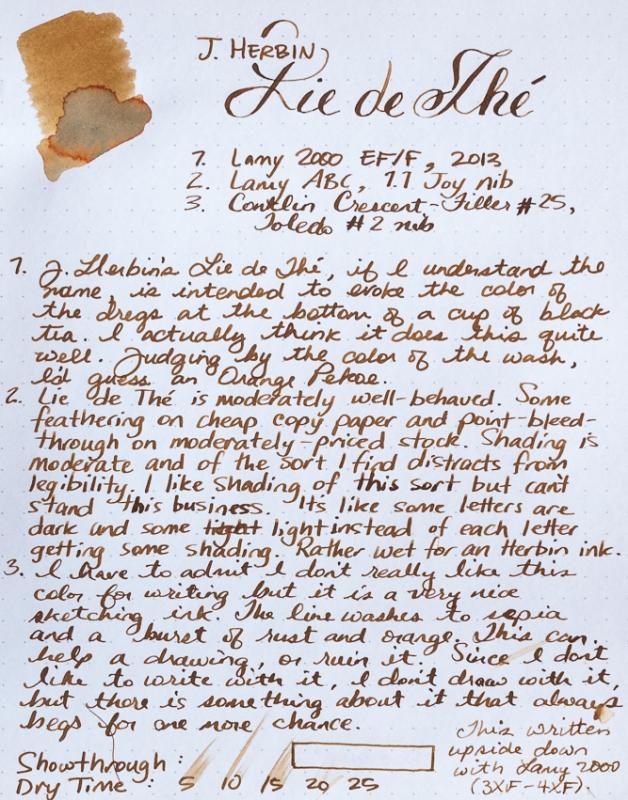 J. HERBIN
Lie de Thé
1. Lamy 2000 EF/F, 2013
2. Lamy ABC, 1.1 Joy nib
3. Conklin Crescent-Filler #25,
Toledo #2 nib
1. J. Herbin's Lie de Thé, if I understand the
name, is intended to evoke the color of
the dregs at the bottom of a cup of black
tea. I actually think it does this quite
well. Judging by the color of the wash,
I'd guess an Orange Pekoe.
2. Lie de Thé is moderately well-behaved. Some
feathering on cheap copy paper and point-bleed-
through on moderately-priced stock. Shading is
moderate and of the sort I find distracts from
legibility. I like shading of this sort but can't
stand this business. It's like some letters are
dark and some light light instead of each letter
getting some shading. Rather wet for an Herbin ink.
3. I have to admit I don't really like this
color for writing but it is a very nice
sketching ink. The line washes to sepia
and a burst of rust and orange. This can
help a drawing, or ruin it. Since I don't
like to write with it, I don't draw with it,
but there is something about it that always
begs for one more chance.
This written
upside down
with Lamy 2000
(3XF-4XF).
Showthrough:
Dry Time: 5 10 15 20 25